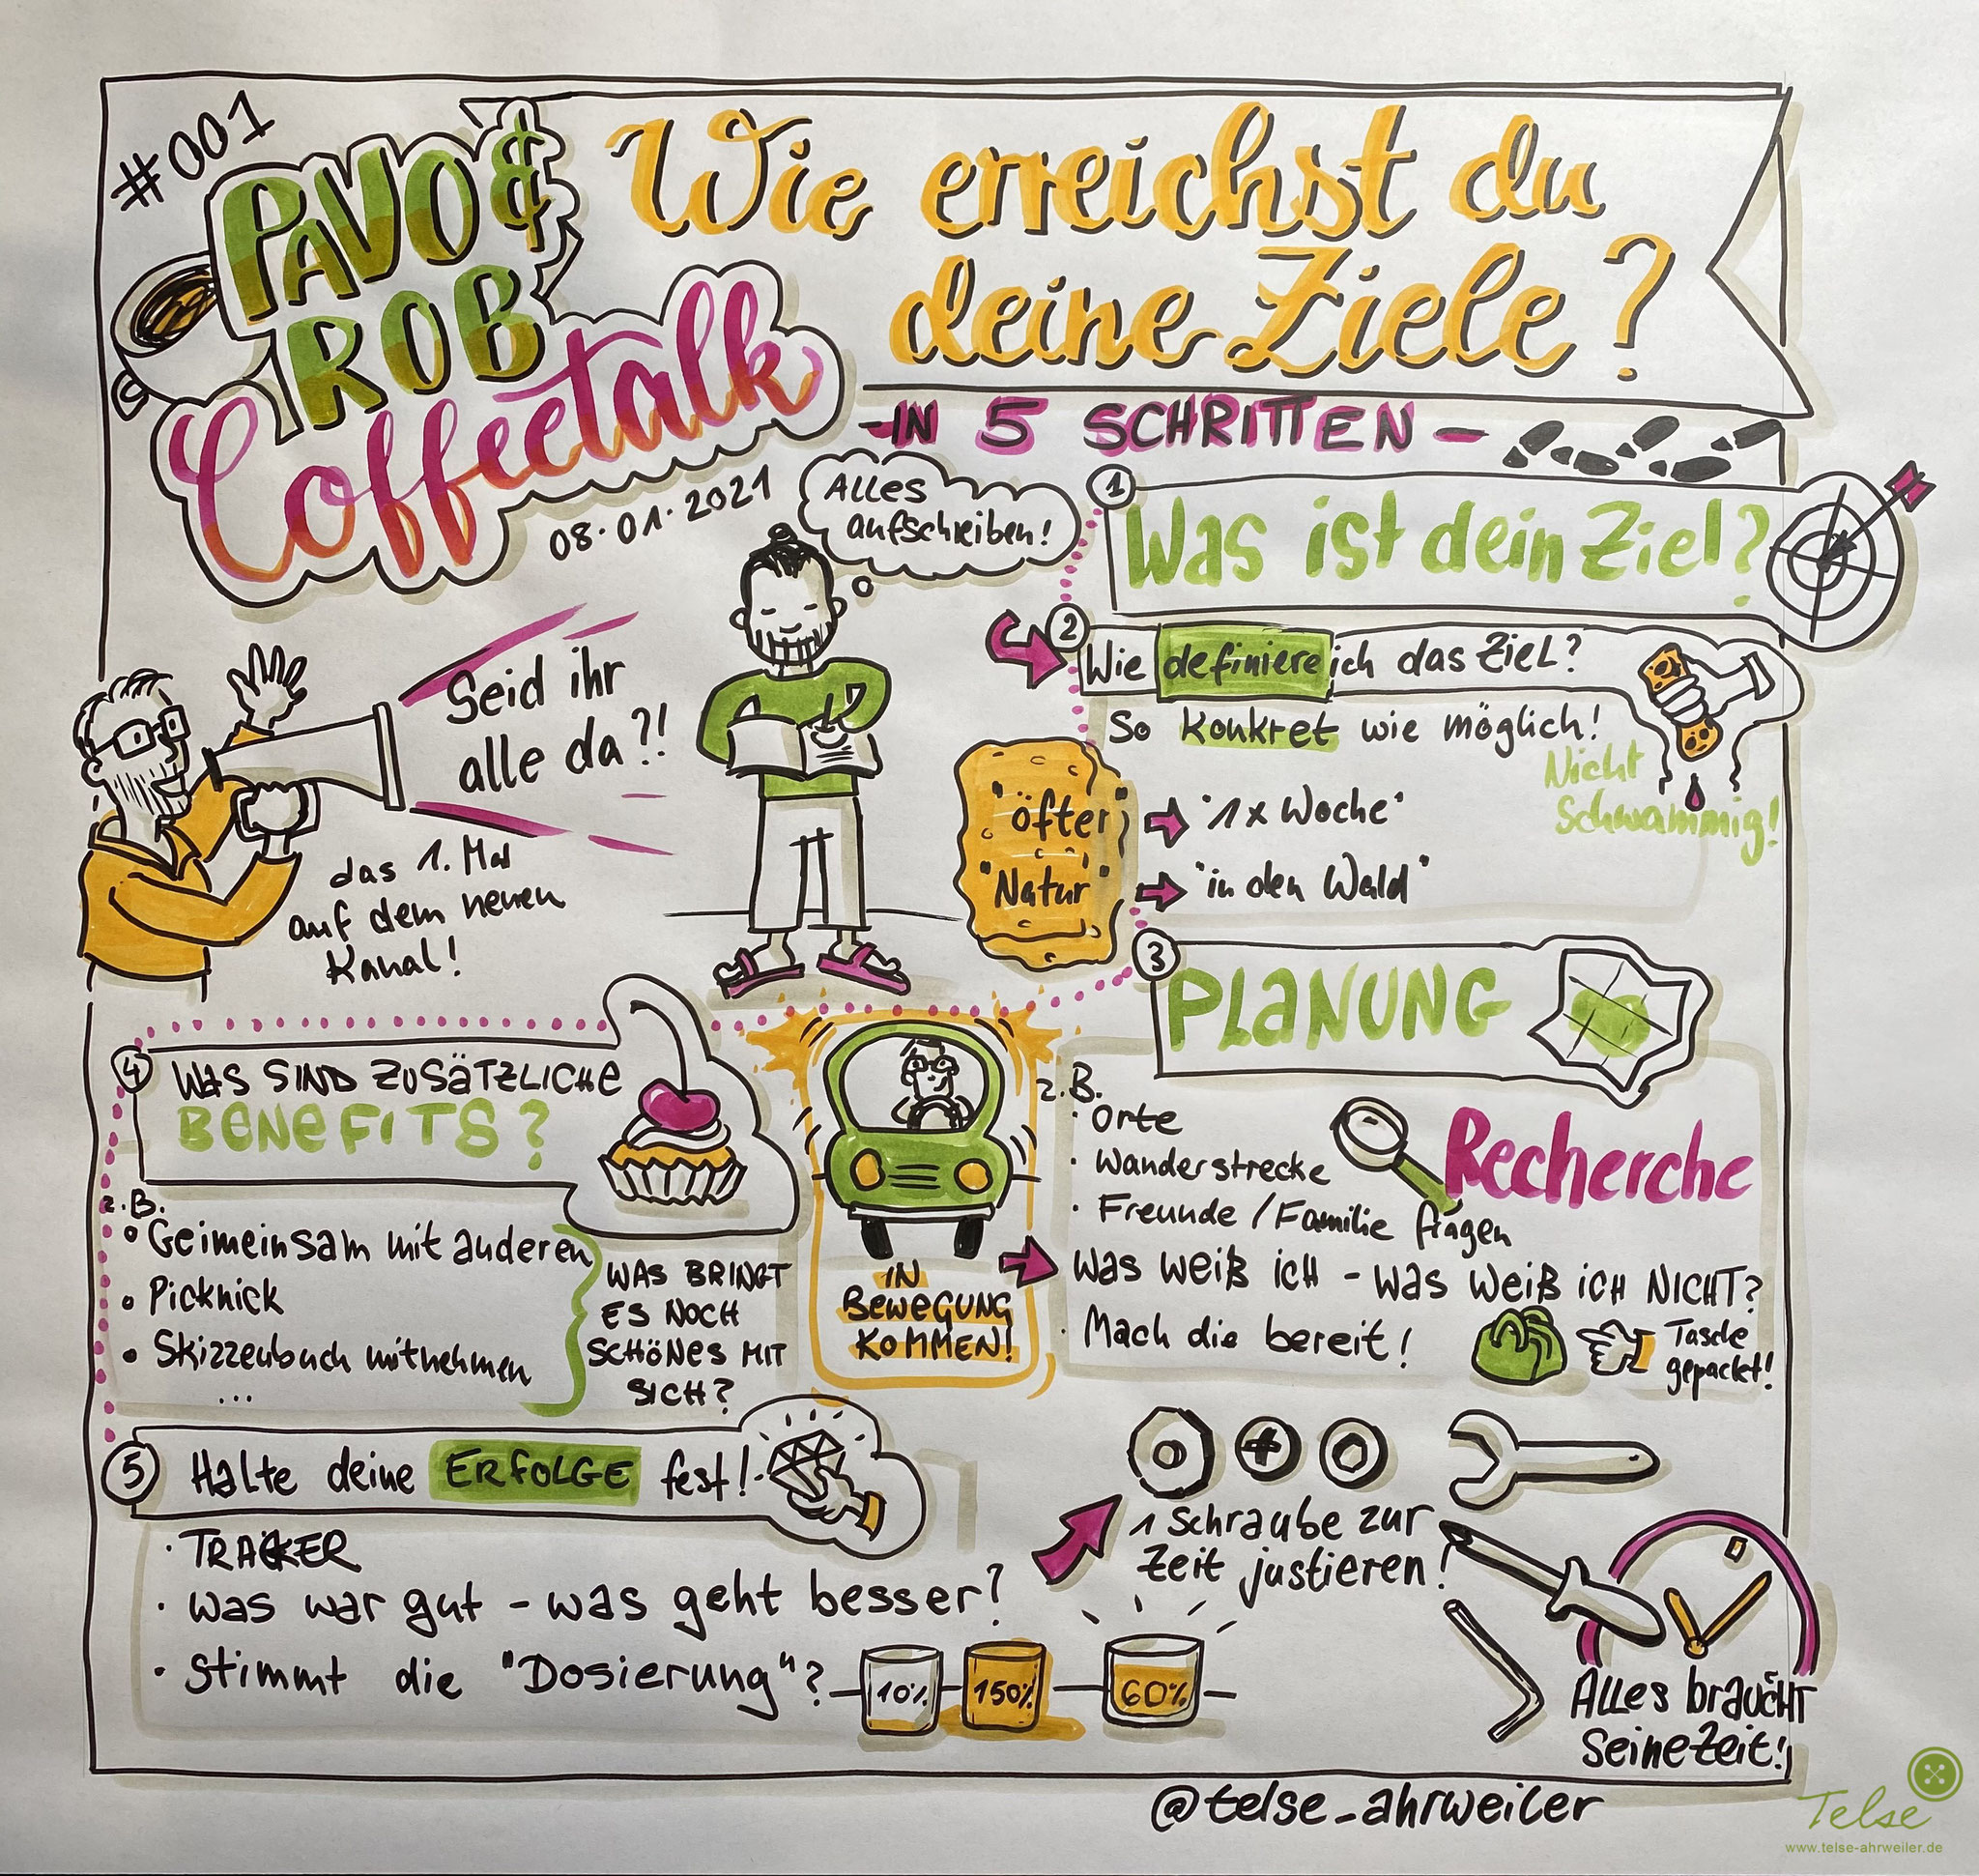 #001
PAVO &
ROB
Coffeetalk
08.01.2021
Wie erreichst du
deine Ziele?
- IN 5 SCHRITTEN -
Alles
aufschreiben!
Seid ihr
alle da?!
das 1. Mal
auf dem neuen
Kanal!
1
Was ist dein Ziel?
2
Wie definiere ich das Ziel?
So konkret wie möglich!
Nicht
Schwammig!
"öfter" "1x Woche"
"Natur" "in den Wald"
3
PLANUNG
z.B.
· Orte
· Wanderstrecke
· Freunde / Familie fragen
Recherche
Was weiß ich - was weiß ich NICHT?
· Mach die bereit!
Tasche
gepackt!
IN
BEWEGUNG
KOMMEN!
4
WAS SIND ZUSÄTZLICHE
BENEFITS?
z.B.
• Geimeinsam mit anderen
• Picknick
• Skizzenbuch mitnehmen
...
WAS BRINGT
ES NOCH
SCHÖNES MIT
SICH?
5
Halte deine ERFOLGE fest!
· TRACKER
· was war gut - was geht besser?
· Stimmt die "Dosierung"?
10%
150%
60%
1 Schraube zur
Zeit justieren!
Alles braucht
seine Zeit!
@telse_ahrweiler
Telse
www.telse-ahrweiler.de